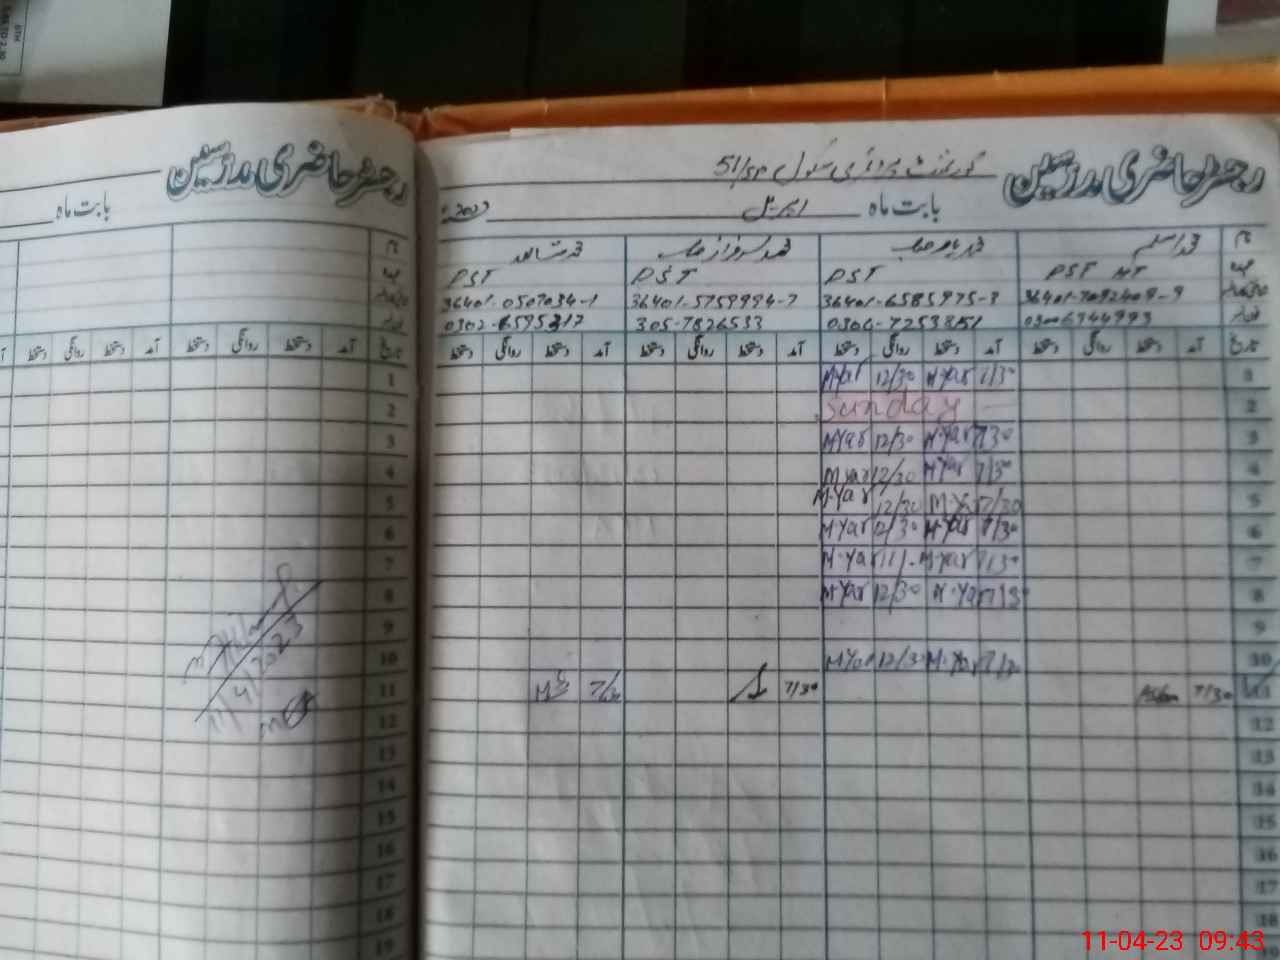 رجسٹر حاضری مدرسین
بابت ماہ
رجسٹر حاضری مدرسین گورنمنٹ پرائمری سکول 51/SP
بابت ماہ اپریل 2023
نام محمد اسلم محمد یار صاحب محمد سرفراز صاحب محمد شاہد
عہدہ PST HT PST PST PST
36401-7092409-9 36401-6585975-3 36401-5759994-7 36401-0507034-1
03006744993 0306-7253851 305-7826533 0302-6595317
تاریخ آمد دستخط روانگی دستخط آمد دستخط روانگی دستخط آمد دستخط روانگی دستخط آمد دستخط روانگی دستخط
1 7/30 M.Yar 12/30 M.Yar
2 Sunday
3 7/30 M.Yar 12/30 M.Yar
4 7/30 M.Yar 12/30 M.Yar
5 7/30 M.Yar 12/30 M.Yar
6 7/30 M.Yar 12/30 M.Yar
7 7/30 M.Yar 11/- M.Yar
8 7/30 M.Yar 12/30 M.Yar
9
10 7/30 M.Yar 12/30 M.Yar
11 7/30 Aslam 7/30 7/30
12
13
14
15
16
17
18
19
11/4/2023
11-04-23 09:43